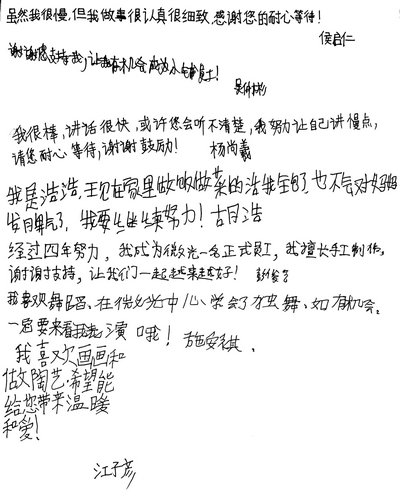 虽然我很慢,但我做事很认真很细致,感谢您的耐心等待!
侯启仁
谢谢您支持我,让我有机会成为小铺员工!
我很棒,讲话很快,或许您会听不清楚,我努力让自己讲慢点,
请您耐心等待,谢谢鼓励! 杨尚羲
我是浩浩,现在家里做的做菜的活我全部了,也不会对妈妈
发脾气了,我要继续努力!古月浩
经过四年努力,我成为微光一名正式员工,我擅长手工制作,
谢谢支持,让我们一起越来越好!
我喜欢舞蹈、在微光中心学会了独舞、如有机会.
一定要来看我表演哦!施安祺.
我喜欢画画和
做陶艺.希望能
给您带来温暖
和爱!
江子彦